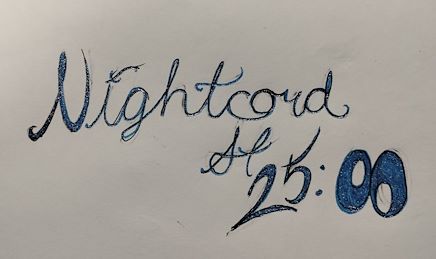 Nightcord
At
25:00